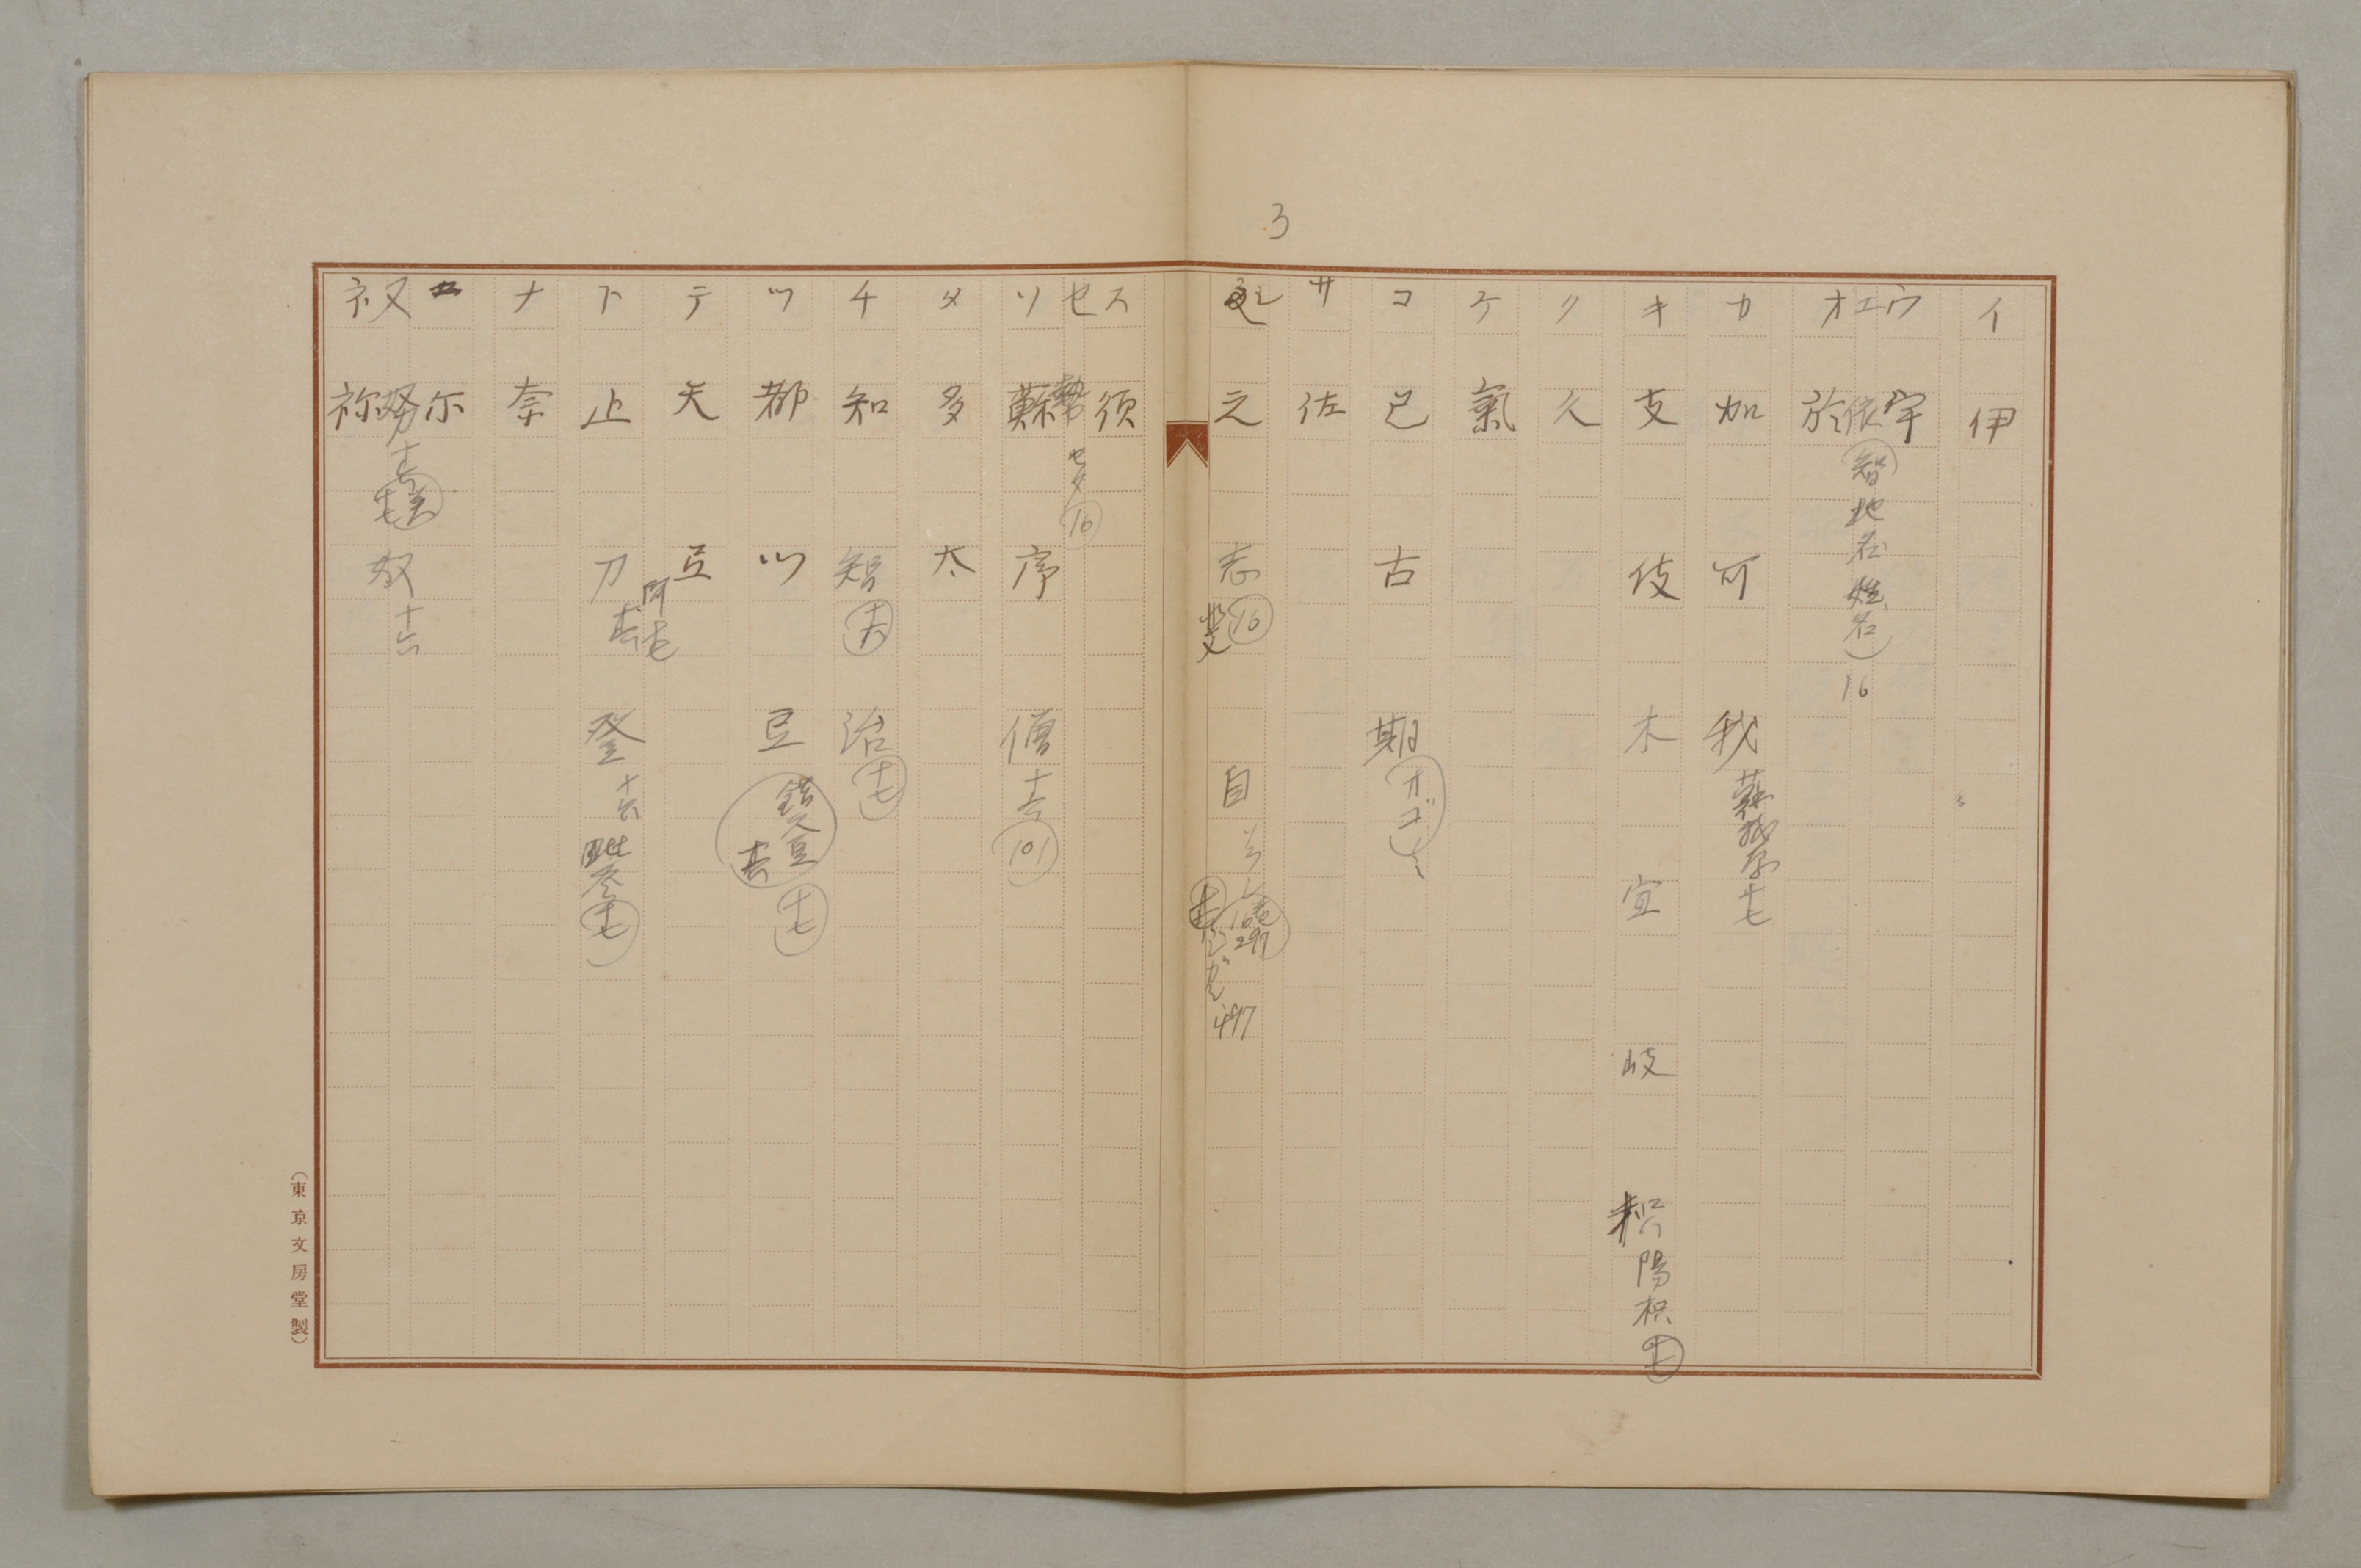 3
イ 伊
ウ 宇
エ 依 (智地名姓名) 16
オ 於
カ 加 可 我 蘓我部 十七
キ 支 伎 木 宜 岐 陽枳 十七
ク 久
ケ 氣
コ 己 古 期 オゴシ
サ 佐
シ 之 志 16 自 497
ス 須
セ 勢 セタ 16
ソ 蘇 序 僧 十六 101
タ 多 太
チ 知 智 十六 治 十七
ツ 都 ツ 豆 十七
テ 天 豆
ト 止 刀 登 十六 十七
ナ 奈
ニ 尓
ヌ 努 十六 十七 奴 十六
ネ 祢
(東京文房堂製)